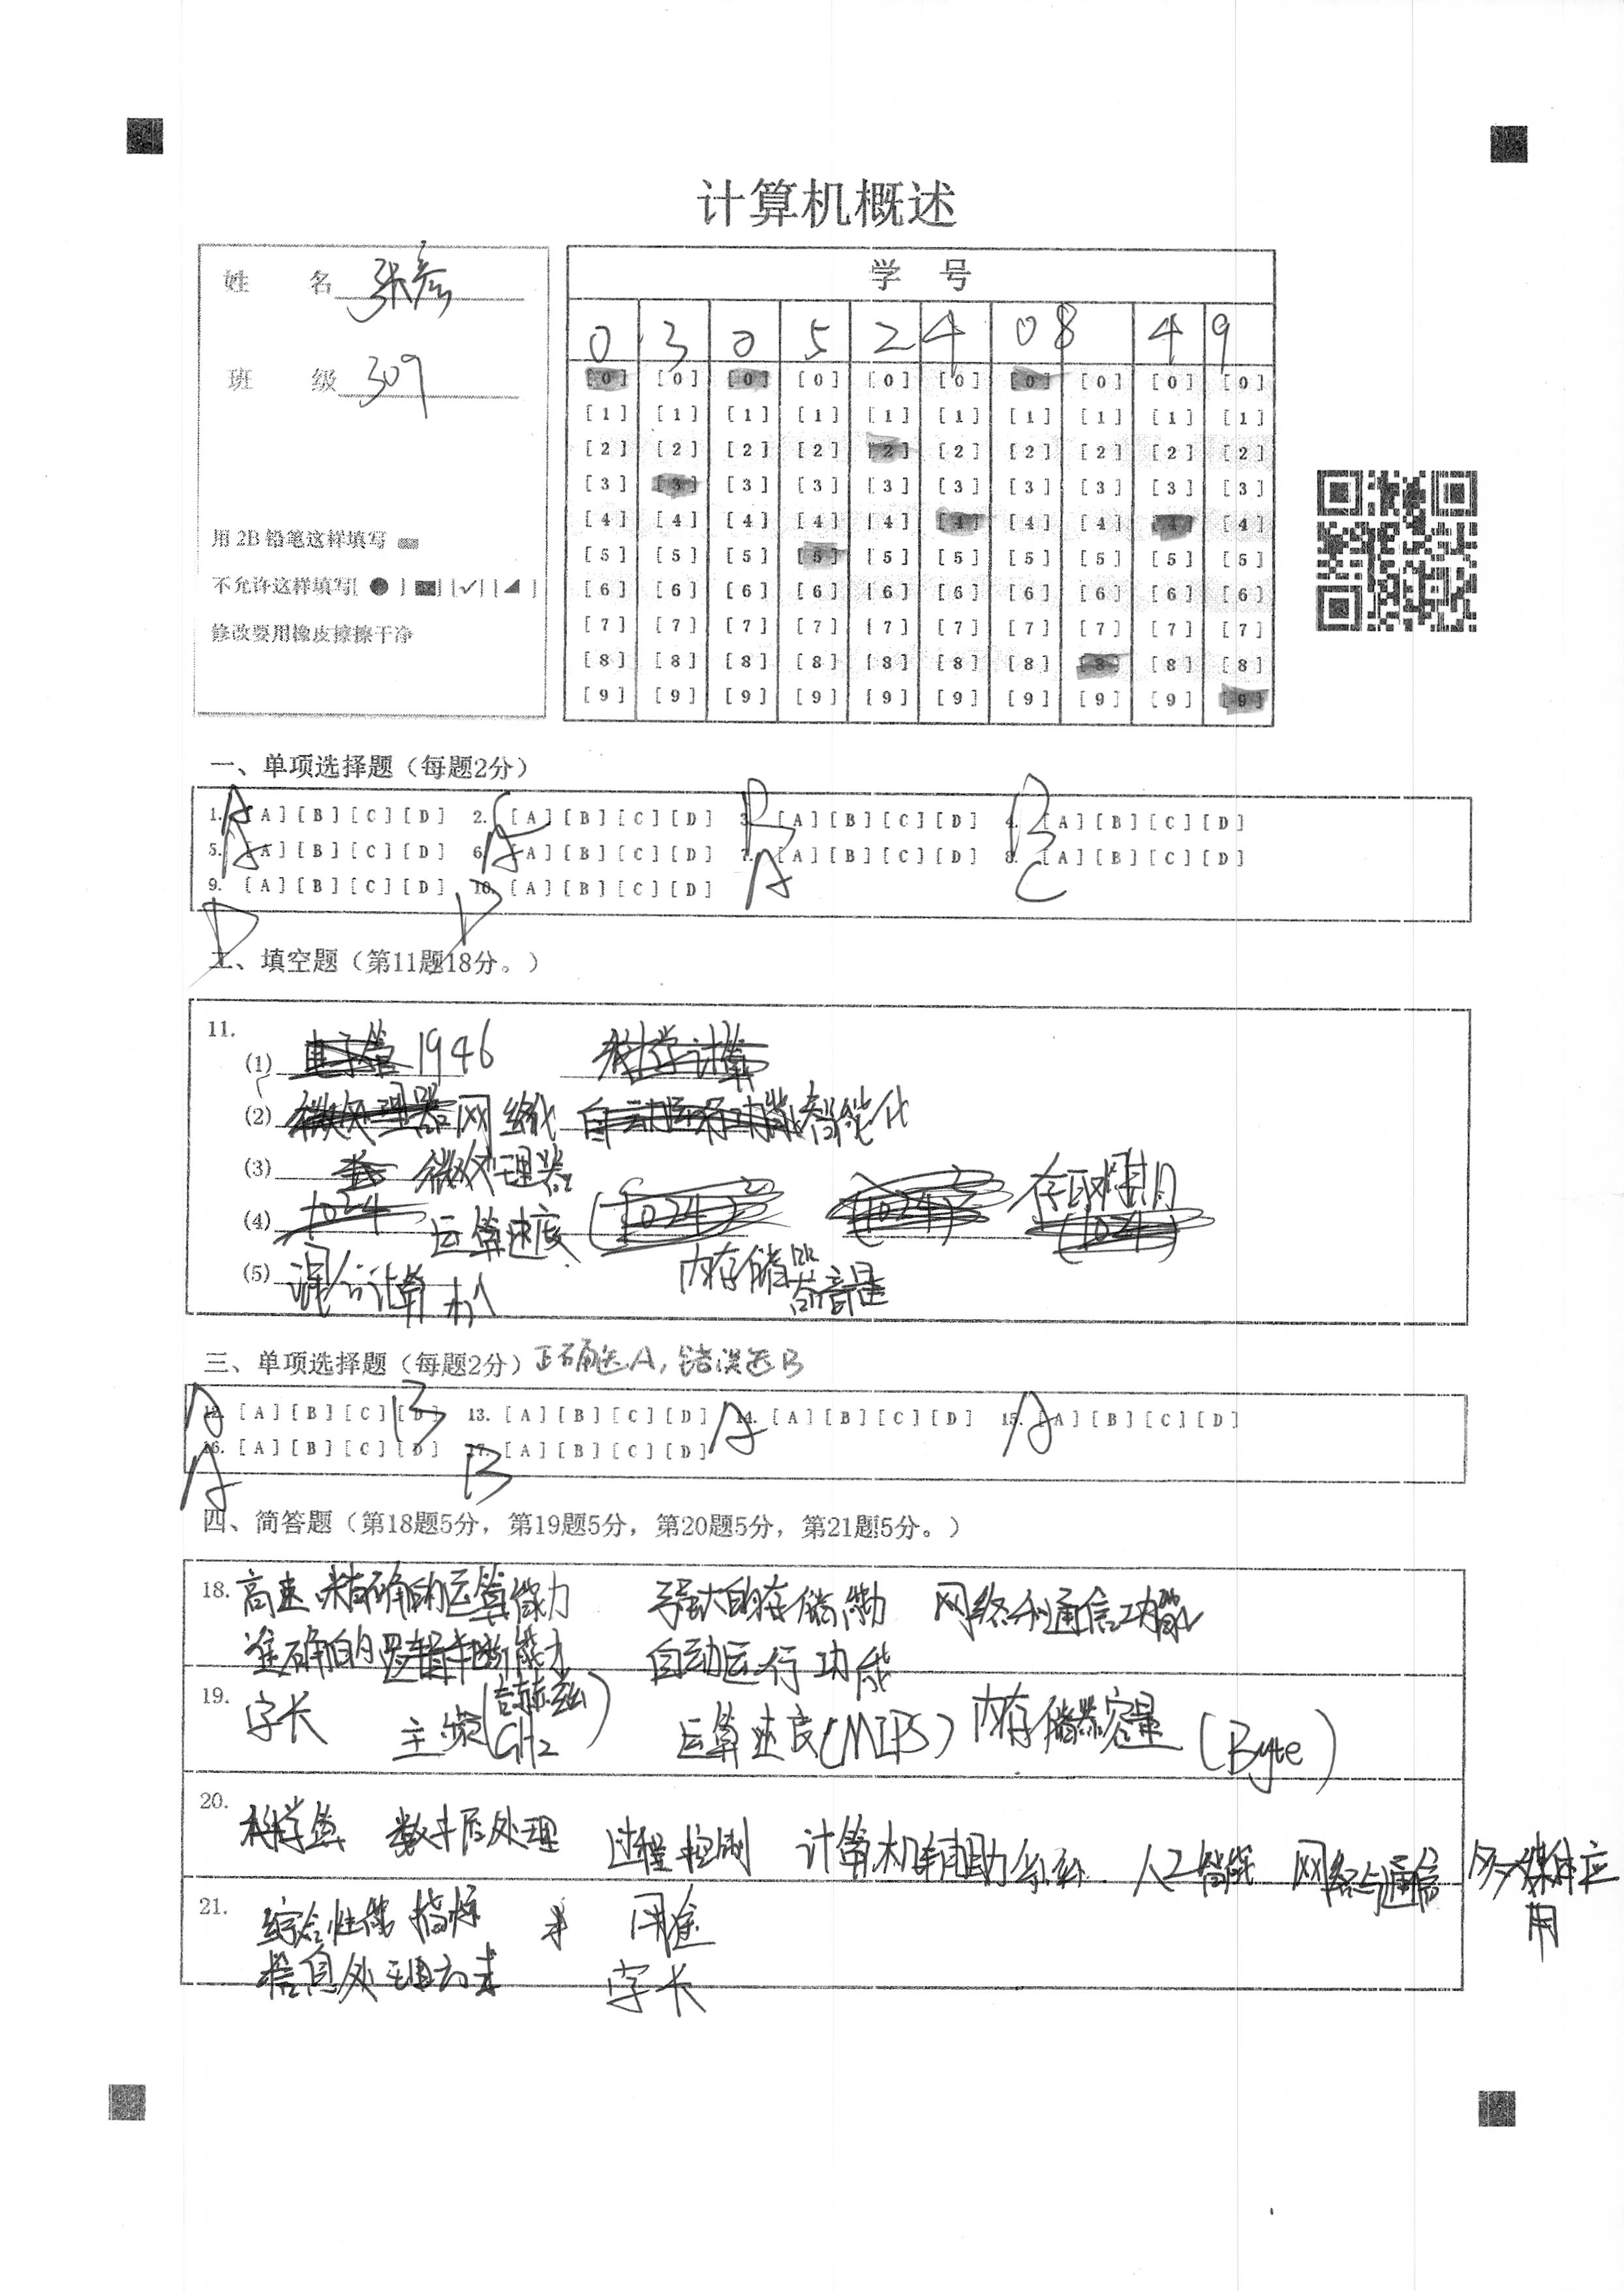 计算机概述
姓 名 张彦
班 级 309
用 2B 铅笔这样填写
不允许这样填写[ ● ] [■] [✓] [◢]
修改要用橡皮擦擦干净
学 号
0 3 0 5 2 4 0 8 4 9
[0] [0] [0] [0] [0] [0] [0] [0] [0] [0]
[1] [1] [1] [1] [1] [1] [1] [1] [1] [1]
[2] [2] [2] [2] [2] [2] [2] [2] [2] [2]
[3] [3] [3] [3] [3] [3] [3] [3] [3] [3]
[4] [4] [4] [4] [4] [4] [4] [4] [4] [4]
[5] [5] [5] [5] [5] [5] [5] [5] [5] [5]
[6] [6] [6] [6] [6] [6] [6] [6] [6] [6]
[7] [7] [7] [7] [7] [7] [7] [7] [7] [7]
[8] [8] [8] [8] [8] [8] [8] [8] [8] [8]
[9] [9] [9] [9] [9] [9] [9] [9] [9] [9]
一、单项选择题（每题2分）
1. A [A] [B] [C] [D] 2. C [A] [B] [C] [D] 3. B [A] [B] [C] [D] 4. B [A] [B] [C] [D]
5. A [A] [B] [C] [D] 6. A [A] [B] [C] [D] 7. A [A] [B] [C] [D] 8. C [A] [B] [C] [D]
9. D [A] [B] [C] [D] 10. D [A] [B] [C] [D]
二、填空题（第11题18分。）
11.
(1) 1946
(2) 网络化 智能化
(3) 微处理器
(4) 运算速度 存取周期
(5) 混合计算机 内存储器容量
三、单项选择题（每题2分）正确选A，错误选B
12. A [A] [B] [C] [D] 13. B [A] [B] [C] [D] 14. A [A] [B] [C] [D] 15. A [A] [B] [C] [D]
16. A [A] [B] [C] [D] 17. B [A] [B] [C] [D]
四、简答题（第18题5分，第19题5分，第20题5分，第21题5分。）
18. 高速、精确的运算能力 强大的存储能力 网络和通信功能
准确的逻辑判断能力 自动运行功能
19. 字长 主频(吉赫兹 GHz) 运算速度(MIPS) 内存储器容量 (Byte)
20. 科学计算 数据处理 过程控制 计算机辅助系统 人工智能 网络与通信 多媒体应用
21. 综合性能指标 用途
信息处理方式 字长